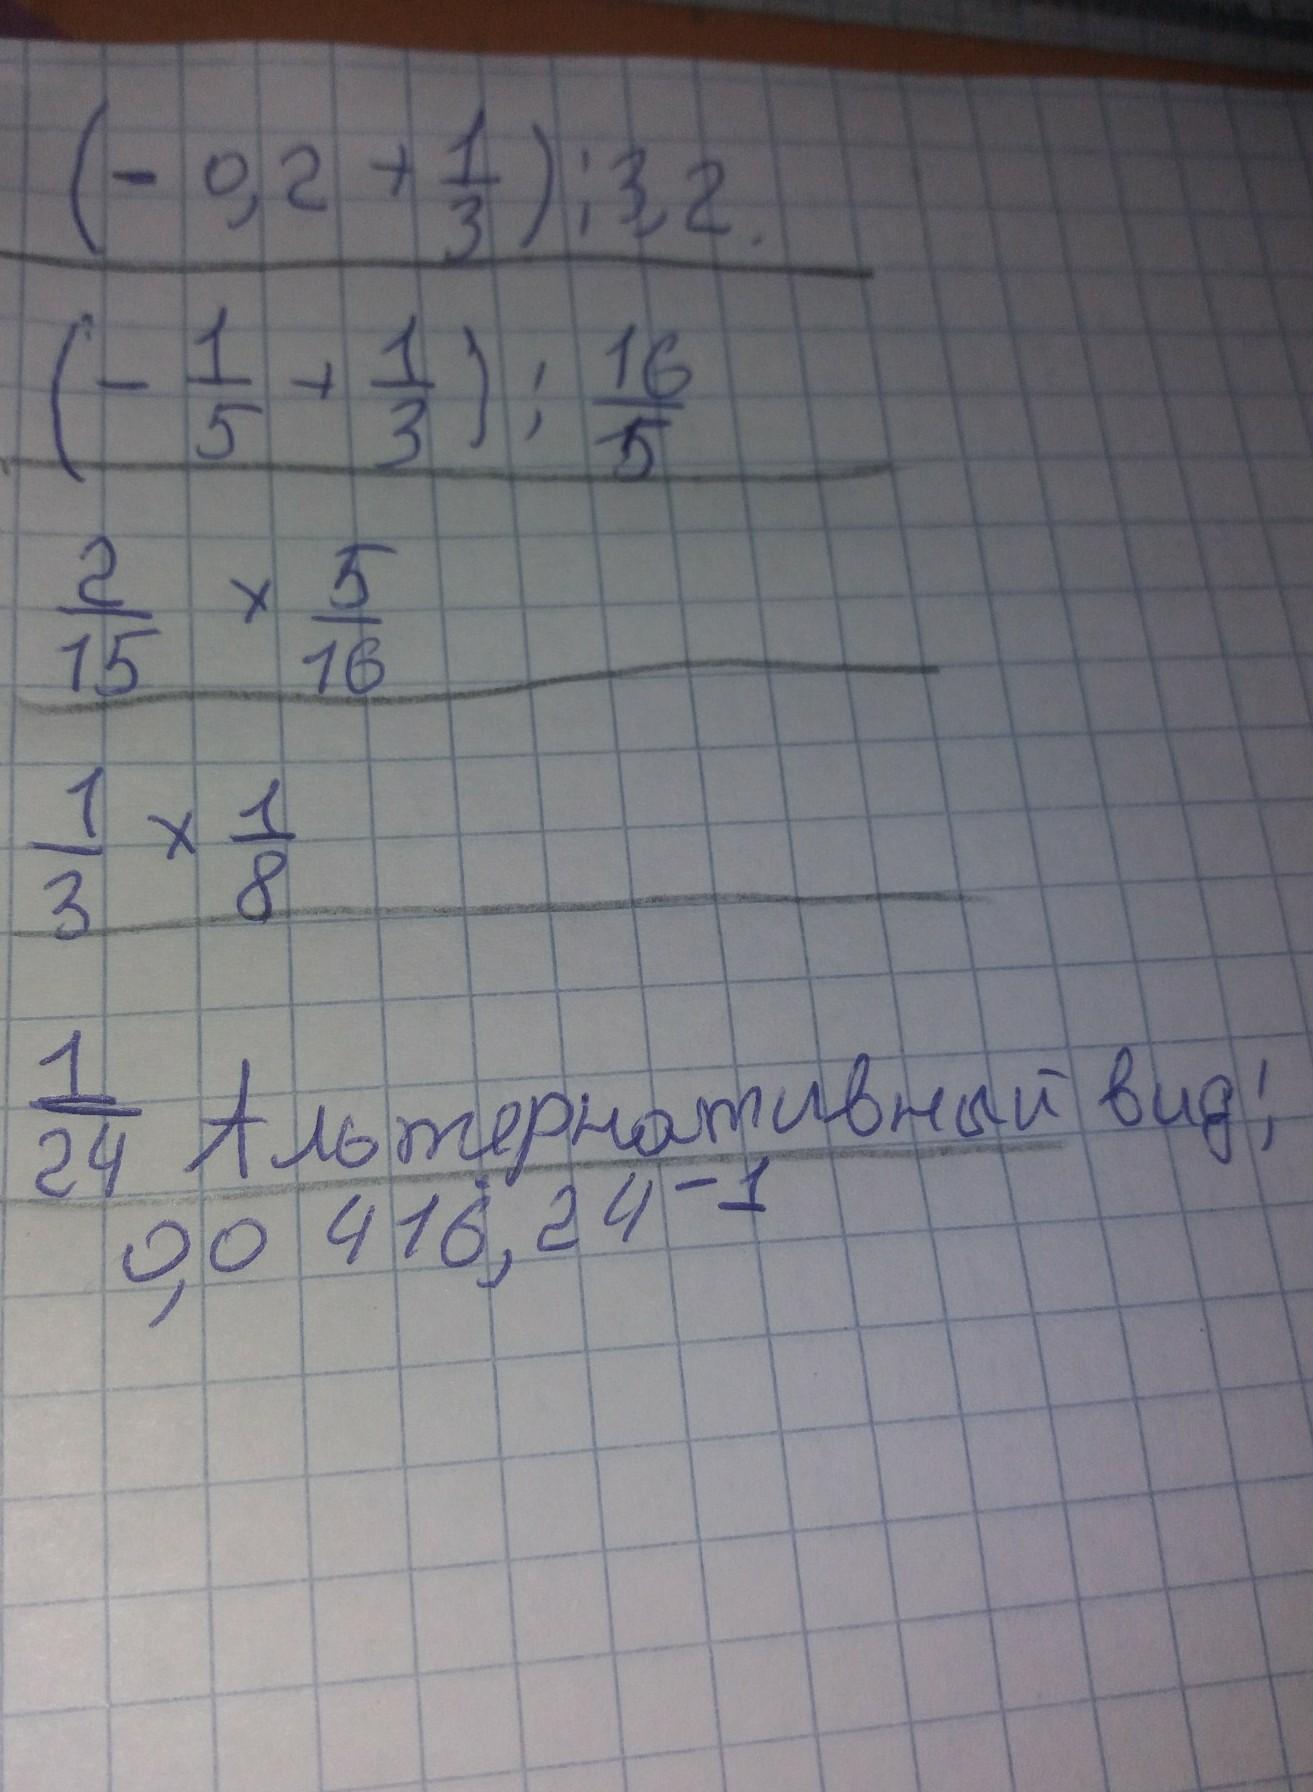 (- 0,2 + 1/3) : 3,2.
(- 1/5 + 1/3) : 16/5
2/15 × 5/16
1/3 × 1/8
1/24 Альтернативный вид:
0,0 416̇, 24⁻¹